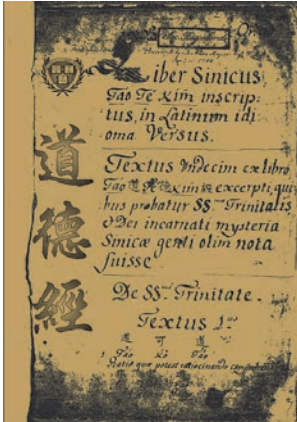 Liber Sinicus
Táo Te Kim inscrip:
tus, in Latinum idi
oma Versus.
Textus Undecim ex libro
Táo 道 Te 德 Kim 經 excerpti, qui
bus probatur SS.mæ Trinitatis
& Dei incarnati mysteria
Sinicæ genti olim nota
fuisse.
De SS.ma Trinitate.
Textus 1.us
道 可 道
Táo Kò Táo
Ratio quæ potest ratiocinando
道德經